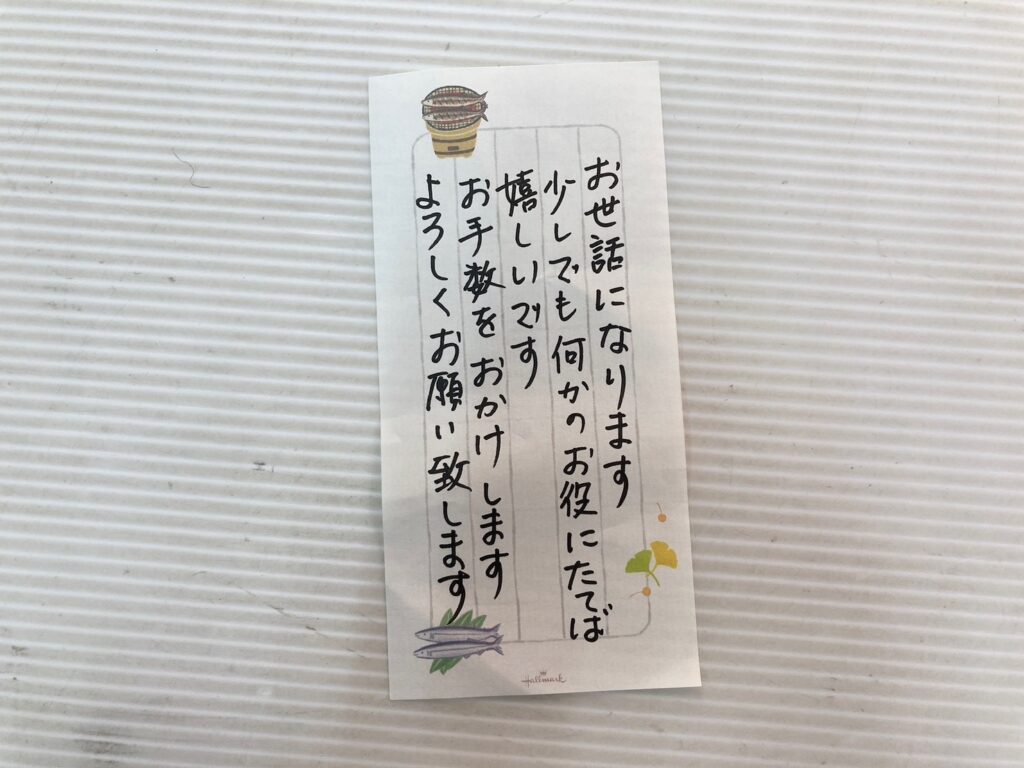 お世話になります
少しでも何かのお役にたてば
嬉しいです
お手数をおかけします
よろしくお願い致します
Hallmark